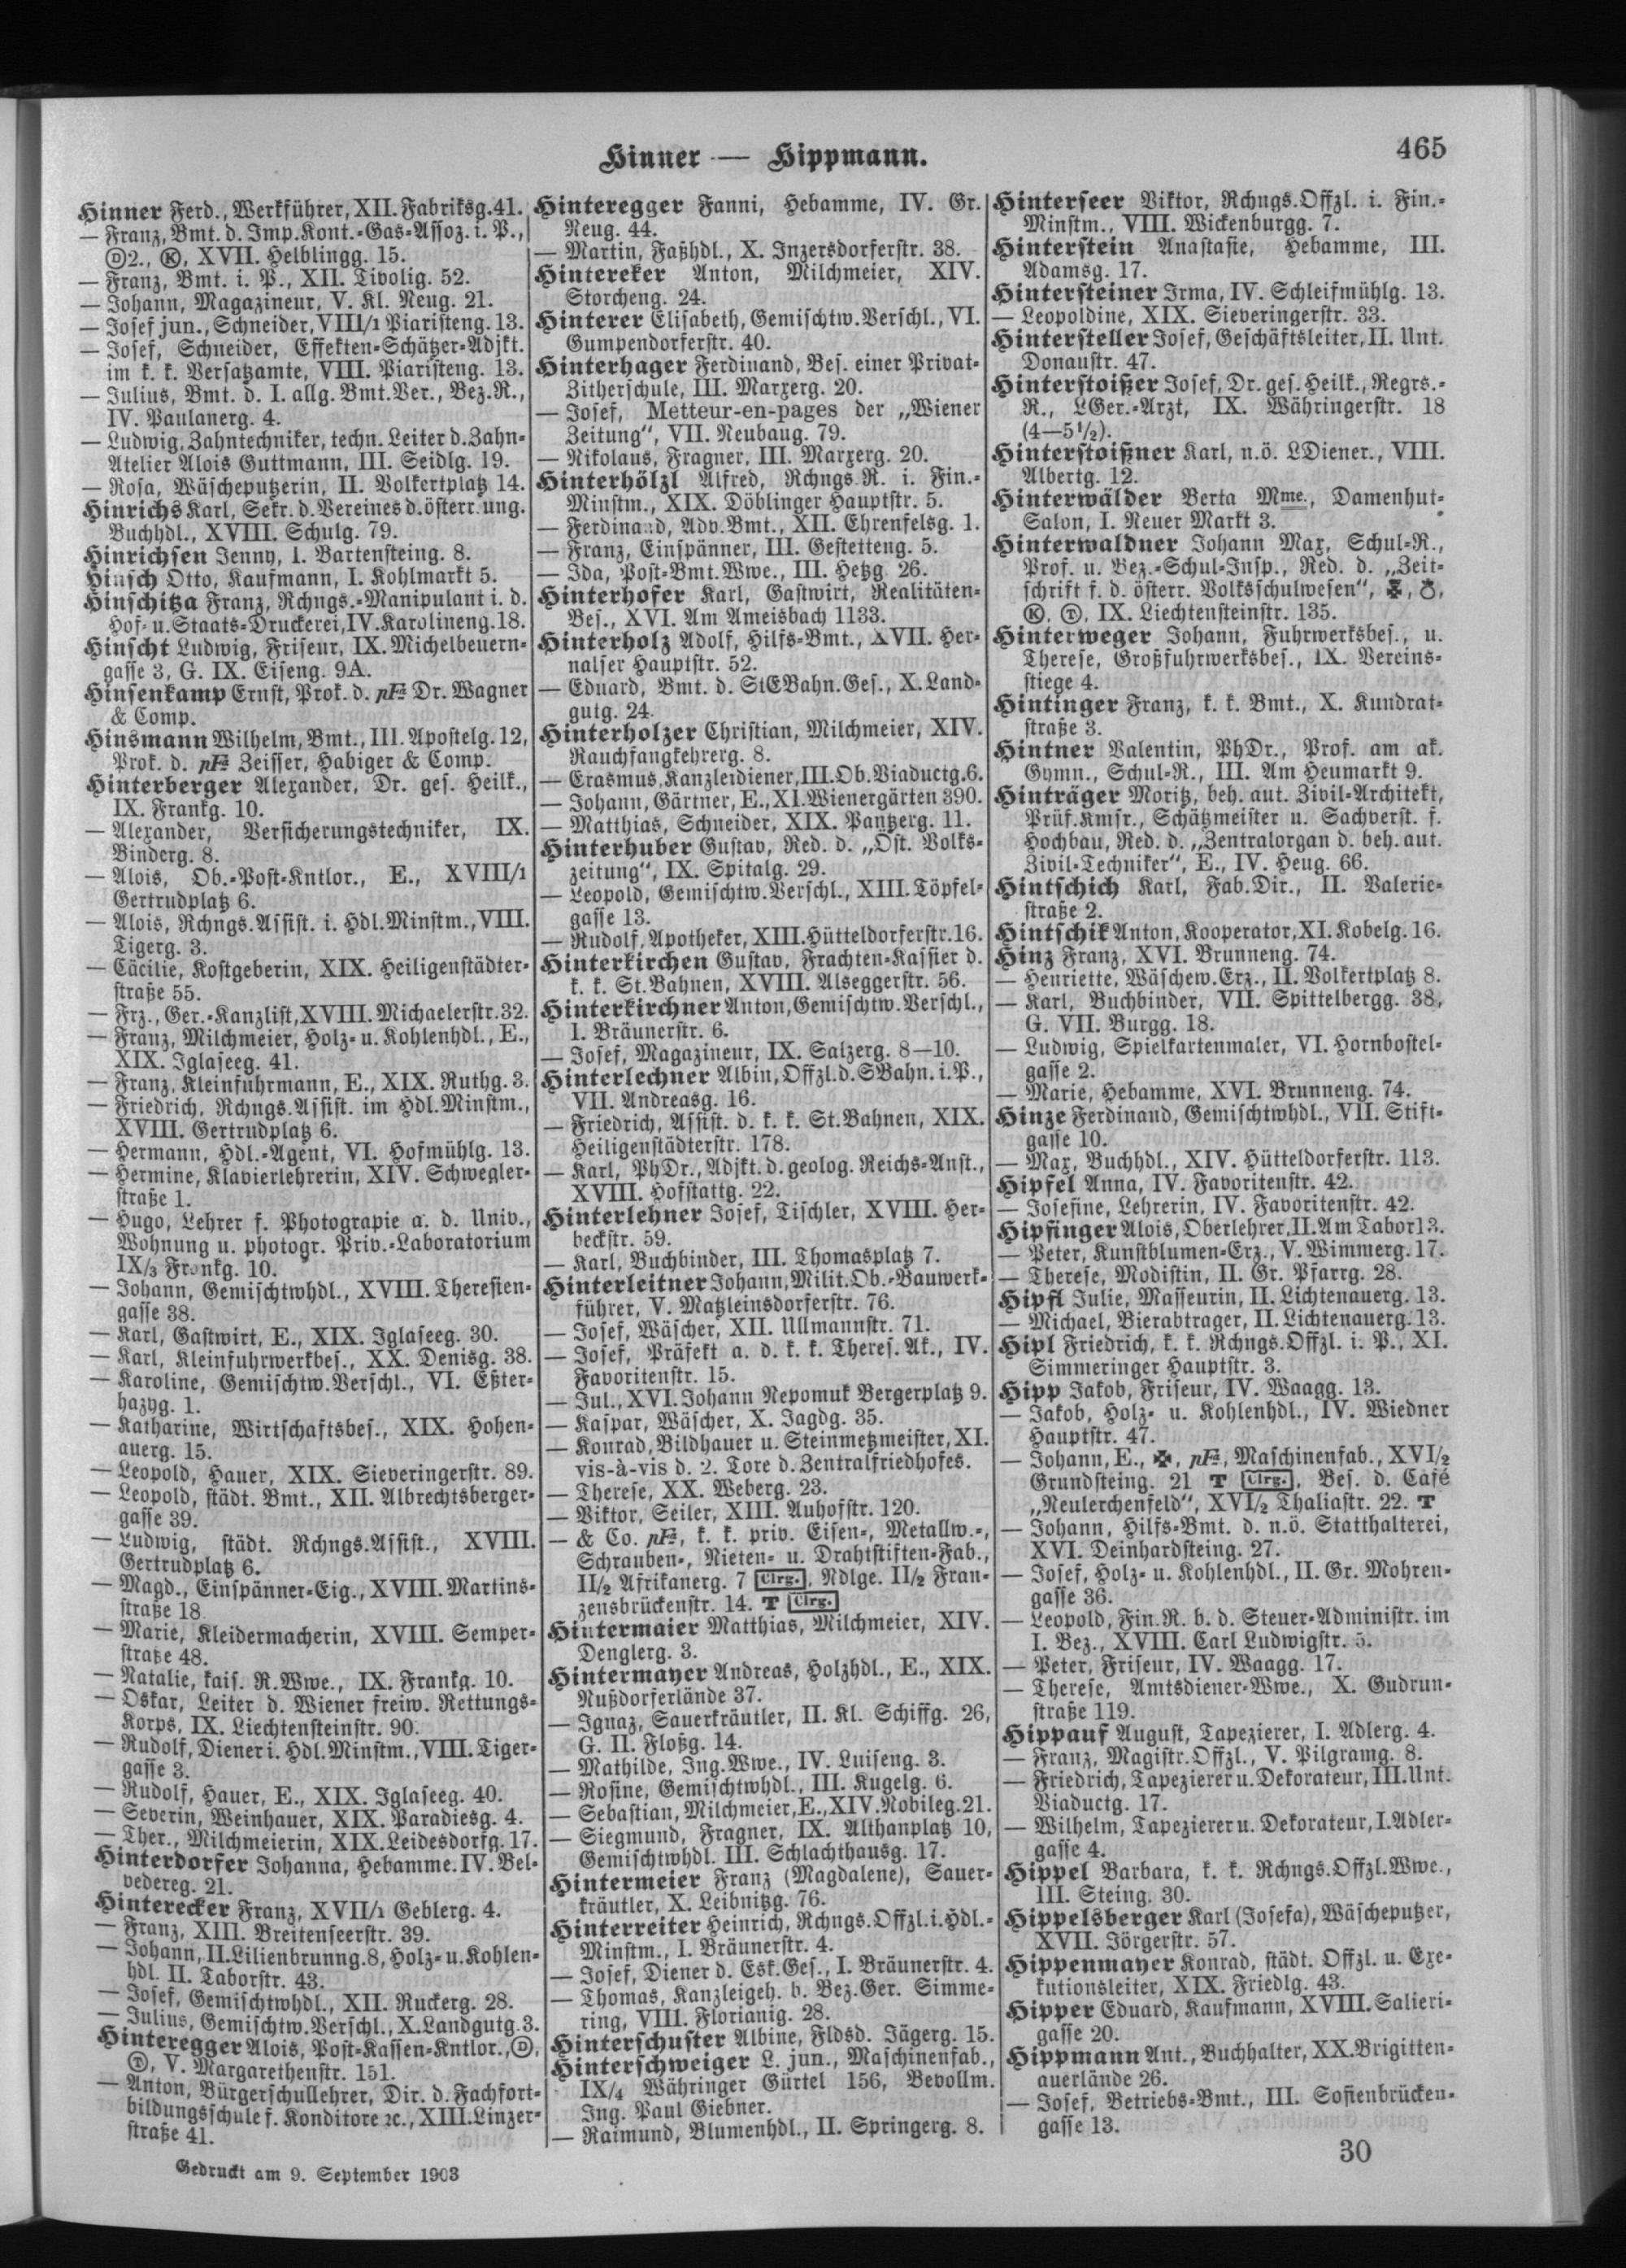 Hinner — Hippmann.
465
Hinner Ferd., Werkführer, XII. Fabriksg. 41.
— Franz, Bmt. d. Imp. Kont.-Gas-Assoz. i. P.,
Ⓓ2., Ⓚ, XVII. Helblingg. 15.
— Franz, Bmt. i. P., XII. Tivolig. 52.
— Johann, Magazineur, V. Kl. Neug. 21.
— Josef jun., Schneider, VIII/1 Piaristeng. 13.
— Josef, Schneider, Effekten-Schätzer-Adjkt.
im k. k. Versatzamte, VIII. Piaristeng. 13.
— Julius, Bmt. d. I. allg. Bmt.Ver., Bez.R.,
IV. Paulanerg. 4.
— Ludwig, Zahntechniker, techn. Leiter d. Zahn-
Atelier Alois Guttmann, III. Seidlg. 19.
— Rosa, Wäscheputzerin, II. Volkertplatz 14.
Hinrichs Karl, Sekr. d. Vereines d. österr. ung.
Buchhdl., XVIII. Schulg. 79.
Hinrichsen Jenny, I. Bartensteing. 8.
Hinsch Otto, Kaufmann, I. Kohlmarkt 5.
Hinschitza Franz, Rchngs.-Manipulant i. d.
Hof- u. Staats-Druckerei, IV. Karolineng. 18.
Hinscht Ludwig, Friseur, IX. Michelbeuern-
gasse 3, G. IX. Eiseng. 9A.
Hinsenkamp Ernst, Prok. d. pFa Dr. Wagner
& Comp.
Hinsmann Wilhelm, Bmt., III. Apostelg. 12,
Prok. d. pFa Zeisser, Habiger & Comp.
Hinterberger Alexander, Dr. ges. Heilk.,
IX. Frankg. 10.
— Alexander, Versicherungstechniker, IX.
Binderg. 8.
— Alois, Ob.-Post-Kntlor., E., XVIII/1
Gertrudplatz 6.
— Alois, Rchngs.Assist. i. Hdl.Minstm., VIII.
Tigerg. 3.
— Cäcilie, Kostgeberin, XIX. Heiligenstädter-
straße 55.
— Frz., Ger.-Kanzlist, XVIII. Michaelerstr. 32.
— Franz, Milchmeier, Holz- u. Kohlenhdl., E.,
XIX. Iglaseeg. 41.
— Franz, Kleinfuhrmann, E., XIX. Ruthg. 3.
— Friedrich, Rchngs.Assist. im Hdl.Minstm.,
XVIII. Gertrudplatz 6.
— Hermann, Hdl.-Agent, VI. Hofmühlg. 13.
— Hermine, Klavierlehrerin, XIV. Schwegler-
straße 1.
— Hugo, Lehrer f. Photograpie a. d. Univ.,
Wohnung u. photogr. Priv.-Laboratorium
IX/3 Frankg. 10.
— Johann, Gemischtwhdl., XVIII. Theresien-
gasse 38.
— Karl, Gastwirt, E., XIX. Iglaseeg. 30.
— Karl, Kleinfuhrwerkbes., XX. Denisg. 38.
— Karoline, Gemischtw.Verschl., VI. Eßter-
hazyg. 1.
— Katharine, Wirtschaftsbes., XIX. Hohen-
auerg. 15.
— Leopold, Hauer, XIX. Sieveringerstr. 89.
— Leopold, städt. Bmt., XII. Albrechtsberger-
gasse 39.
— Ludwig, städt. Rchngs.Assist., XVIII.
Gertrudplatz 6.
— Magd., Einspänner-Eig., XVIII. Martins-
straße 18.
— Marie, Kleidermacherin, XVIII. Semper-
straße 48.
— Natalie, kais. R.Wwe., IX. Frankg. 10.
— Oskar, Leiter d. Wiener freiw. Rettungs-
Korps, IX. Liechtensteinstr. 90.
— Rudolf, Diener i. Hdl.Minstm., VIII. Tiger-
gasse 3.
— Rudolf, Hauer, E., XIX. Iglaseeg. 40.
— Severin, Weinhauer, XIX. Paradiesg. 4.
— Ther., Milchmeierin, XIX. Leidesdorfg. 17.
Hinterdorfer Johanna, Hebamme. IV. Bel-
vedereg. 21.
Hinterecker Franz, XVII/1 Geblerg. 4.
— Franz, XIII. Breitenseerstr. 39.
— Johann, II. Lilienbrunng. 8, Holz- u. Kohlen-
hdl. II. Taborstr. 43.
— Josef, Gemischtwhdl., XII. Ruckerg. 28.
— Julius, Gemischtw.Verschl., X. Landgutg. 3.
Hinteregger Alois, Post-Kassen-Kntlor., Ⓓ,
Ⓣ, V. Margarethenstr. 151.
— Anton, Bürgerschullehrer, Dir. d. Fachfort-
bildungsschule f. Konditore ꝛc., XIII. Linzer-
straße 41.
Hinteregger Fanni, Hebamme, IV. Gr.
Neug. 44.
— Martin, Faßhdl., X. Inzersdorferstr. 38.
Hintereker Anton, Milchmeier, XIV.
Storcheng. 24.
Hinterer Elisabeth, Gemischtw.Verschl., VI.
Gumpendorferstr. 40.
Hinterhager Ferdinand, Bes. einer Privat-
Zitherschule, III. Marxerg. 20.
— Josef, Metteur-en-pages der „Wiener
Zeitung“, VII. Neubaug. 79.
— Nikolaus, Fragner, III. Marxerg. 20.
Hinterhölzl Alfred, Rchngs.R. i. Fin.-
Minstm., XIX. Döblinger Hauptstr. 5.
— Ferdinand, Adv.Bmt., XII. Ehrenfelsg. 1.
— Franz, Einspänner, III. Gestetteng. 5.
— Ida, Post-Bmt.Wwe., III. Hetzg. 26.
Hinterhofer Karl, Gastwirt, Realitäten-
Bes., XVI. Am Ameisbach 1133.
Hinterholz Adolf, Hilfs-Bmt., XVII. Her-
nalser Hauptstr. 52.
— Eduard, Bmt. d. StEBahn.Ges., X. Land-
gutg. 24.
Hinterholzer Christian, Milchmeier, XIV.
Rauchfangkehrerg. 8.
— Erasmus, Kanzleidiener, III. Ob. Viaductg. 6.
— Johann, Gärtner, E., XI. Wienergärten 390.
— Matthias, Schneider, XIX. Pantzerg. 11.
Hinterhuber Gustav, Red. d. „Öst. Volks-
zeitung“, IX. Spitalg. 29.
— Leopold, Gemischtw.Verschl., XIII. Töpfel-
gasse 13.
— Rudolf, Apotheker, XIII. Hütteldorferstr. 16.
Hinterkirchen Gustav, Frachten-Kassier d.
k. k. St.Bahnen, XVIII. Alseggerstr. 56.
Hinterkirchner Anton, Gemischtw.Verschl.,
I. Bräunerstr. 6.
— Josef, Magazineur, IX. Salzerg. 8—10.
Hinterlechner Albin, Offzl. d. SBahn. i. P.,
VII. Andreasg. 16.
— Friedrich, Assist. d. k. k. St.Bahnen, XIX.
Heiligenstädterstr. 178.
— Karl, PhDr., Adjkt. d. geolog. Reichs-Anst.,
XVIII. Hofstattg. 22.
Hinterlehner Josef, Tischler, XVIII. Her-
beckstr. 59.
— Karl, Buchbinder, III. Thomasplatz 7.
Hinterleitner Johann, Milit.Ob.-Bauwerk-
führer, V. Matzleinsdorferstr. 76.
— Josef, Wäscher, XII. Ullmannstr. 71.
— Josef, Präfekt a. d. k. k. Theres. Ak., IV.
Favoritenstr. 15.
— Jul., XVI. Johann Nepomuk Bergerplatz 9.
— Kaspar, Wäscher, X. Jagdg. 35.
— Konrad, Bildhauer u. Steinmetzmeister, XI.
vis-à-vis d. 2. Tore d. Zentralfriedhofes.
— Therese, XX. Weberg. 23.
— Viktor, Seiler, XIII. Auhofstr. 120.
— & Co. pFa, k. k. priv. Eisen-, Metallw.-,
Schrauben-, Nieten- u. Drahtstiften-Fab.,
II/2 Afrikanerg. 7 Clrg., Ndlge. II/2 Fran-
zensbrückenstr. 14. T Clrg.
Hintermaier Matthias, Milchmeier, XIV.
Denglerg. 3.
Hintermayer Andreas, Holzhdl., E., XIX.
Nußdorferlände 37.
— Ignaz, Sauerkräutler, II. Kl. Schiffg. 26,
G. II. Floßg. 14.
— Mathilde, Ing.Wwe., IV. Luiseng. 3.
— Rosine, Gemischtwhdl., III. Kugelg. 6.
— Sebastian, Milchmeier, E., XIV. Nobileg. 21.
— Siegmund, Fragner, IX. Althanplatz 10,
Gemischtwhdl. III. Schlachthausg. 17.
Hintermeier Franz (Magdalene), Sauer-
kräutler, X. Leibnitzg. 76.
Hinterreiter Heinrich, Rchngs.Offzl. i. Hdl.-
Minstm., I. Bräunerstr. 4.
— Josef, Diener d. Esk.Ges., I. Bräunerstr. 4.
— Thomas, Kanzleigeh. b. Bez.Ger. Simme-
ring, VIII. Florianig. 28.
Hinterschuster Albine, Fldsd. Jägerg. 15.
Hinterschweiger L. jun., Maschinenfab.,
IX/4 Währinger Gürtel 156, Bevollm.
Ing. Paul Giebner.
— Raimund, Blumenhdl., II. Springerg. 8.
Hinterseer Viktor, Rchngs.Offzl. i. Fin.-
Minstm., VIII. Wickenburgg. 7.
Hinterstein Anastasie, Hebamme, III.
Adamsg. 17.
Hintersteiner Irma, IV. Schleifmühlg. 13.
— Leopoldine, XIX. Sieveringerstr. 33.
Hintersteller Josef, Geschäftsleiter, II. Unt.
Donaustr. 47.
Hinterstoißer Josef, Dr. ges. Heilk., Regrs.-
R., LGer.-Arzt, IX. Währingerstr. 18
(4—5½).
Hinterstoißner Karl, n.ö. LDiener., VIII.
Albertg. 12.
Hinterwälder Berta Mme., Damenhut-
Salon, I. Neuer Markt 3.
Hinterwaldner Johann Max, Schul-R.,
Prof. u. Bez.-Schul-Insp., Red. d. „Zeit-
schrift f. d. österr. Volksschulwesen“,
Ⓚ, Ⓣ, IX. Liechtensteinstr. 135.
Hinterweger Johann, Fuhrwerksbes., u.
Therese, Großfuhrwerksbes., IX. Vereins-
stiege 4.
Hintinger Franz, k. k. Bmt., X. Kundrat-
straße 3.
Hintner Valentin, PhDr., Prof. am ak.
Gymn., Schul-R., III. Am Heumarkt 9.
Hinträger Moritz, beh. aut. Zivil-Architekt,
Prüf.Kmsr., Schätzmeister u. Sachverst. f.
Hochbau, Red. d. „Zentralorgan d. beh. aut.
Zivil-Techniker“, E., IV. Heug. 66.
Hintschich Karl, Fab.Dir., II. Valerie-
straße 2.
Hintschik Anton, Kooperator, XI. Kobelg. 16.
Hinz Franz, XVI. Brunneng. 74.
— Henriette, Wäschew.Erz., II. Volkertplatz 8.
— Karl, Buchbinder, VII. Spittelbergg. 38,
G. VII. Burgg. 18.
— Ludwig, Spielkartenmaler, VI. Hornbostel-
gasse 2.
— Marie, Hebamme, XVI. Brunneng. 74.
Hinze Ferdinand, Gemischtwhdl., VII. Stift-
gasse 10.
— Max, Buchhdl., XIV. Hütteldorferstr. 113.
Hipfel Anna, IV. Favoritenstr. 42.
— Josefine, Lehrerin, IV. Favoritenstr. 42.
Hipfinger Alois, Oberlehrer, II. Am Tabor 13.
— Peter, Kunstblumen-Erz., V. Wimmerg. 17.
— Therese, Modistin, II. Gr. Pfarrg. 28.
Hipfl Julie, Masseurin, II. Lichtenauerg. 13.
— Michael, Bierabtrager, II. Lichtenauerg. 13.
Hipl Friedrich, k. k. Rchngs.Offzl. i. P., XI.
Simmeringer Hauptstr. 3.
Hipp Jakob, Friseur, IV. Waagg. 13.
— Jakob, Holz- u. Kohlenhdl., IV. Wiedner
Hauptstr. 47.
— Johann, E., ✠, pFa, Maschinenfab., XVI/2
Grundsteing. 21 T Clrg., Bes. d. Café
„Neulerchenfeld“, XVI/2 Thaliastr. 22. T
— Johann, Hilfs-Bmt. d. n.ö. Statthalterei,
XVI. Deinhardsteing. 27.
— Josef, Holz- u. Kohlenhdl., II. Gr. Mohren-
gasse 36.
— Leopold, Fin.R. b. d. Steuer-Administr. im
I. Bez., XVIII. Carl Ludwigstr. 5.
— Peter, Friseur, IV. Waagg. 17.
— Therese, Amtsdiener-Wwe., X. Gudrun-
straße 119.
Hippauf August, Tapezierer, I. Adlerg. 4.
— Franz, Magistr.Offzl., V. Pilgramg. 8.
— Friedrich, Tapezierer u. Dekorateur, III. Unt.
Viaductg. 17.
— Wilhelm, Tapezierer u. Dekorateur, I. Adler-
gasse 4.
Hippel Barbara, k. k. Rchngs.Offzl.Wwe.,
III. Steing. 30.
Hippelsberger Karl (Josefa), Wäscheputzer,
XVII. Jörgerstr. 57.
Hippenmayer Konrad, städt. Offzl. u. Exe-
kutionsleiter, XIX. Friedlg. 43.
Hipper Eduard, Kaufmann, XVIII. Salieri-
gasse 20.
Hippmann Ant., Buchhalter, XX. Brigitten-
auerlände 26.
— Josef, Betriebs-Bmt., III. Sofienbrücken-
gasse 13.
Gedruckt am 9. September 1903
30